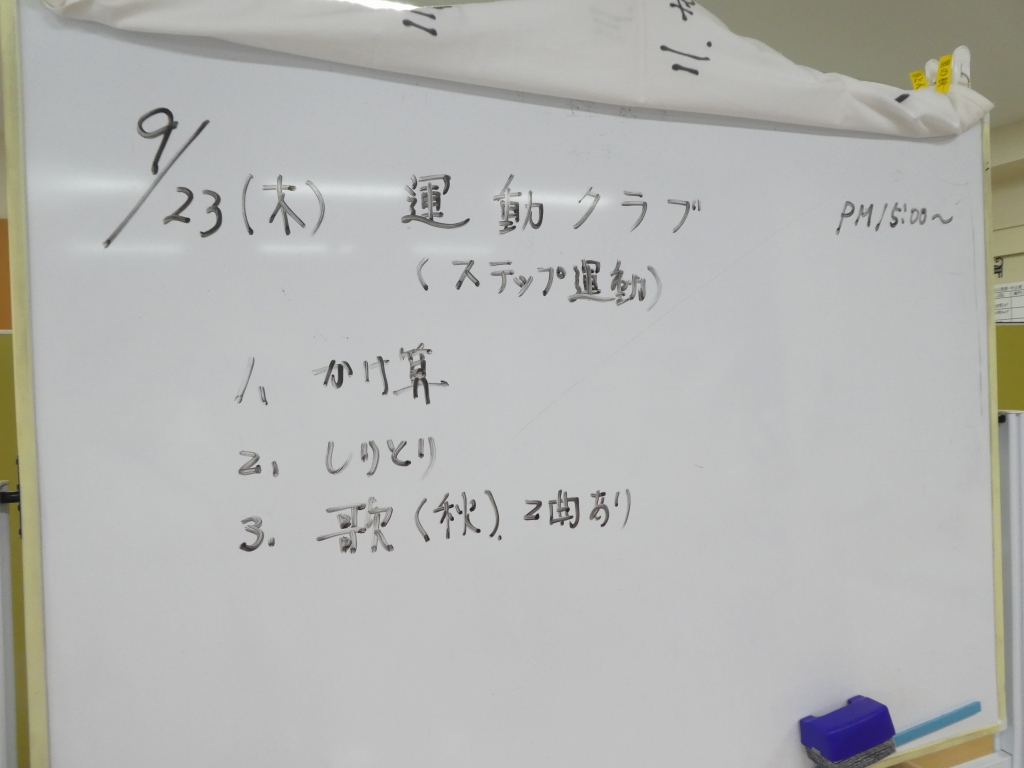 9/23(木) 運動クラブ PM15:00～
(ステップ運動)
1. かけ算
2. しりとり
3. 歌(秋). 2曲あり
11.